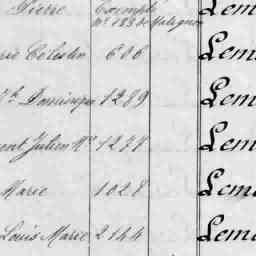 Pierre Exempté Lem
Nº 183 de Matignon
rie Célestin 606 Lem
Dominique 1289 Lem
ent Julien Mie 1277 Lem
Marie 1028 Lem
Louis Marie 2144 Lem